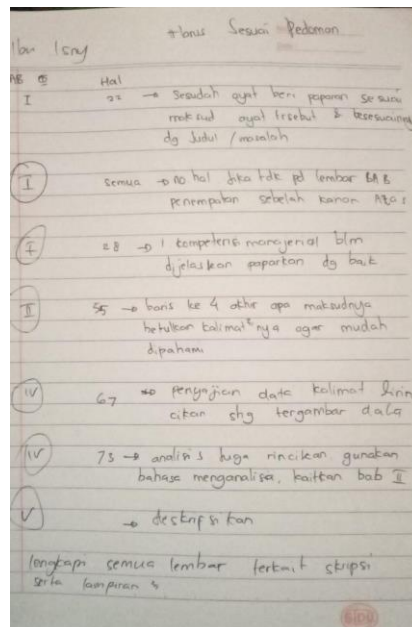 Harus Sesuai Pedoman
Ibu Isny
BAB Hal
I 22 → Sesudah ayat beri paparan sesuai
maksud ayat trsebut & kesesuaiannya
dg Judul / masalah
I semua → no hal jika tdk pd lembar BAB
penempatan sebelah kanan Atas
I 28 → 1 kompetensi manajerial blm
dijelaskan paparkan dg baik
II 55 → baris ke 4 akhir apa maksudnya
betulkan kalimat²nya agar mudah
dipahami
IV 67 → Penyajian data kalimat dirin
cikan shg tergambar data
IV 73 → analisis juga rincikan, gunakan
bahasa menganalisa, kaitkan bab II
V → deskripsikan
lengkapi semua lembar terkait skripsi
serta lampiran s
SIDU